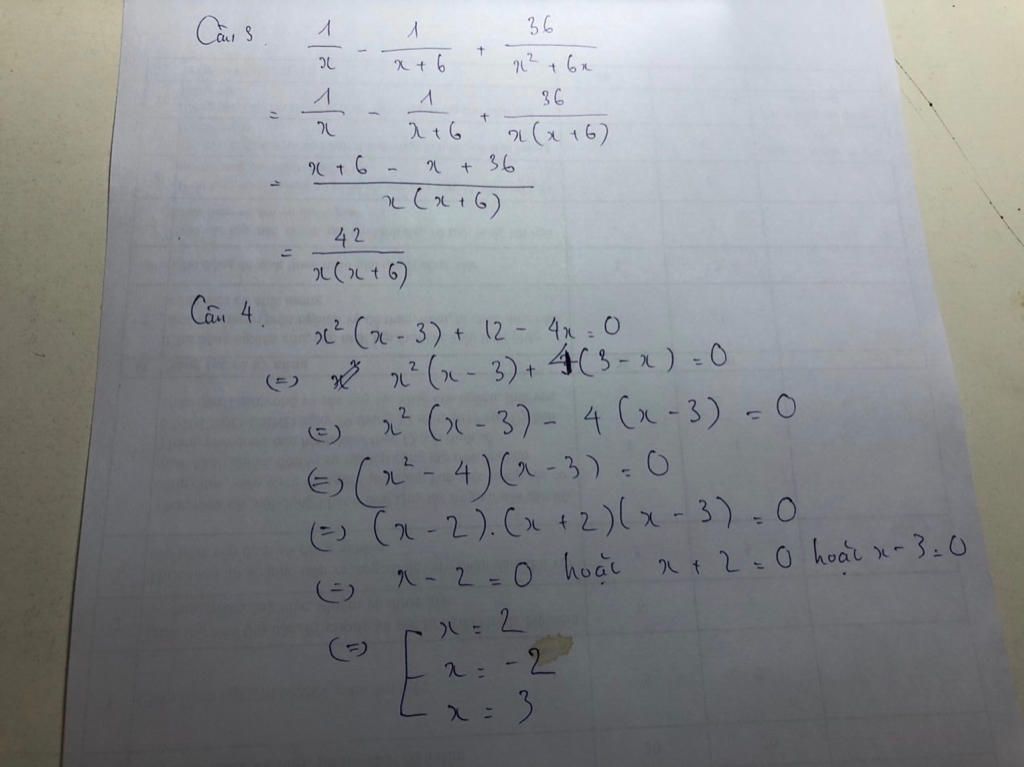 Câu 3. 1/x - 1/(x+6) + 36/(x² + 6x)
= 1/x - 1/(x+6) + 36/(x(x+6))
= (x + 6 - x + 36)/(x(x+6))
= 42/(x(x+6))
Câu 4.
x²(x-3) + 12 - 4x = 0
(=) x²(x-3) + 4(3-x) = 0
(=) x²(x-3) - 4(x-3) = 0
(=) (x²-4)(x-3) = 0
(=) (x-2).(x+2)(x-3) = 0
(=) x-2 = 0 hoặc x+2 = 0 hoặc x-3 = 0
(=) [ x = 2
x = -2
x = 3